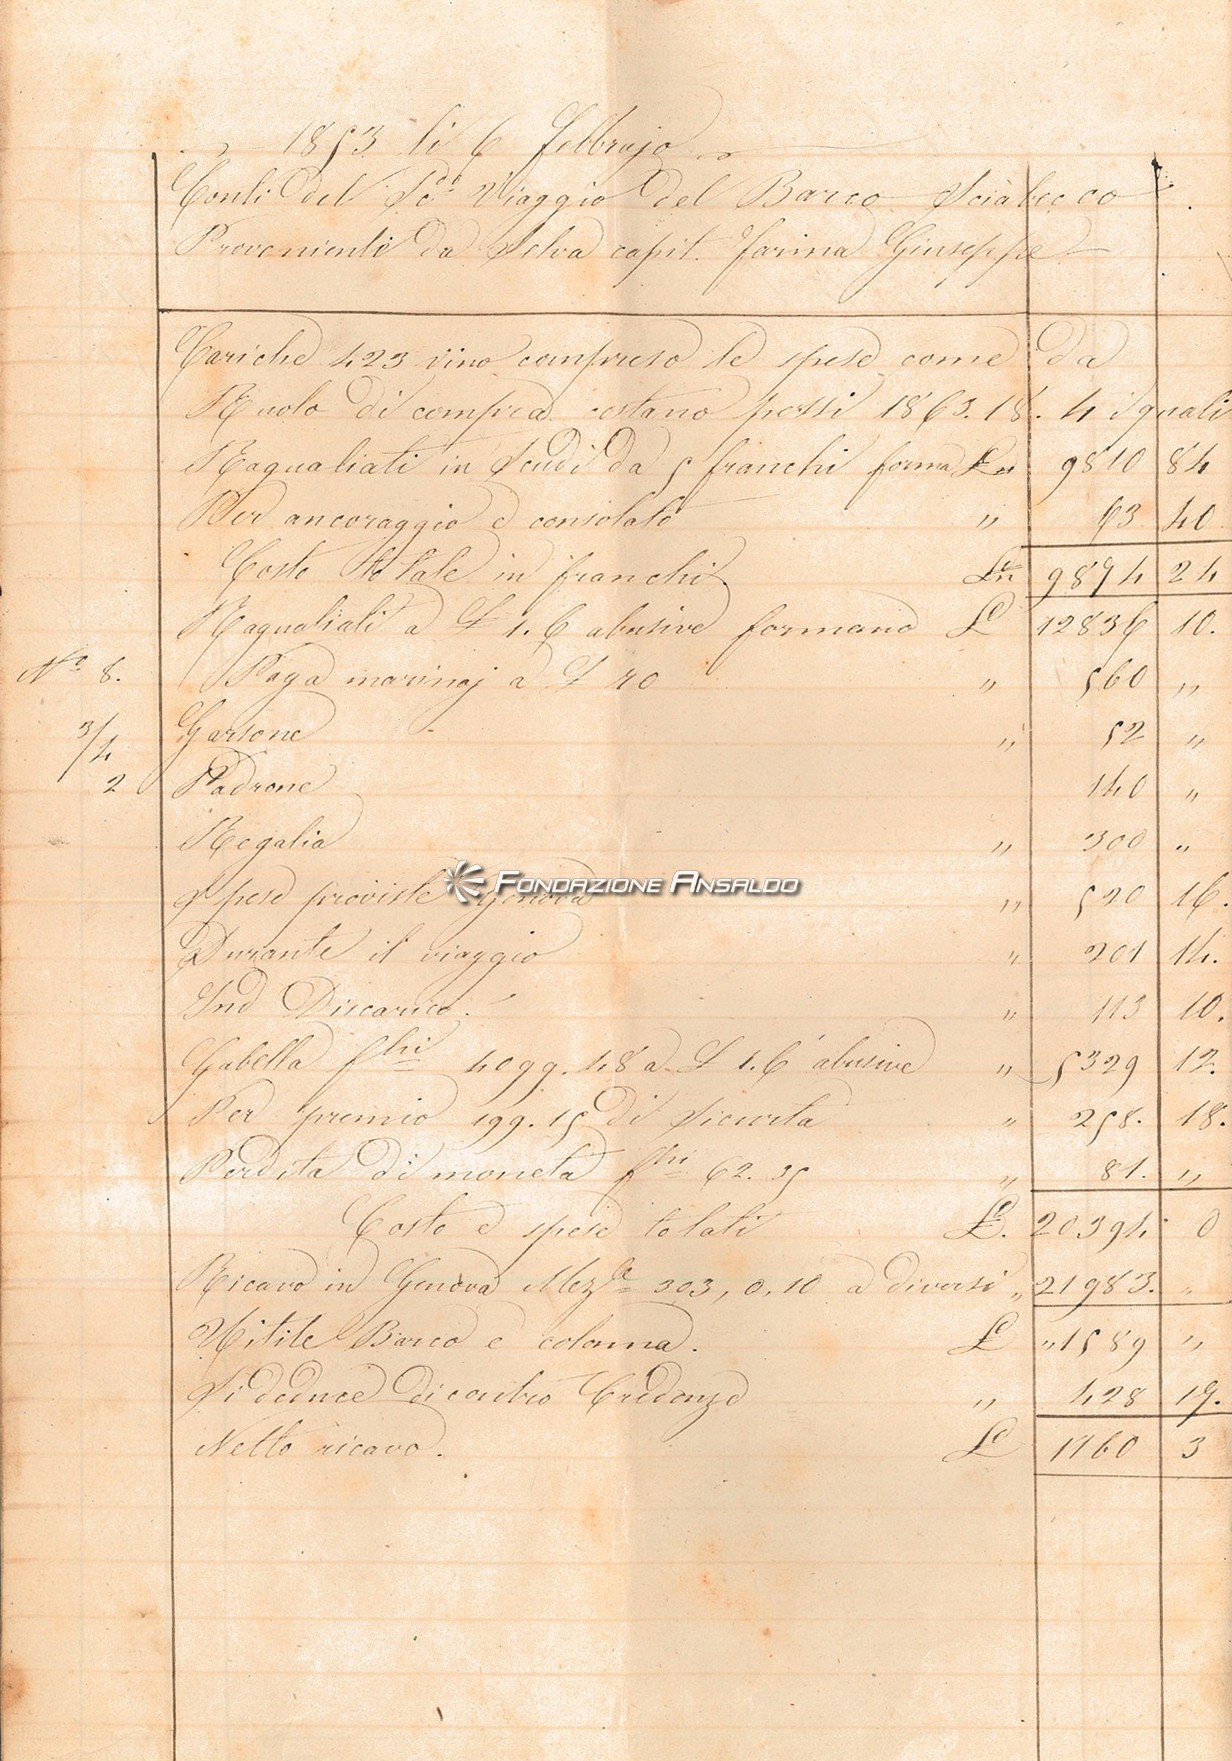 1853 li 6 Febbrajo
Conti del Sdo Viaggio del Barco Sciabecco
Provenienti da Selva capit. Farina Giuseppe
Cariche 423 vino compreso le spese come da
Ruolo di compra costano pessi 1863.18.4 i quali
Ragualiati in Scudi da 5 franchi forma Ln 9810 84
Per ancoraggio e consolato " 63 40
Costo totale in franchi Ln 9874 24
Ragualiati a L 1.6 abusive formano L 12836 10.
No 8. Paga marinaj a L 70 " 560 "
3/4 Garsone " 52 "
2 Padrone 140 "
Regalia " 300 "
Spese proviste Genova " 520 16.
Durante il viaggio " 201 14.
Ind Discarico. " 113 10.
Gabella fchi 4099.48 a L 1.6 abusive " 5329 12.
Per premio 199.15 di Sicurtà " 258. 18.
Perdita di moneta fchi 62.35 " 81. "
Costo e spese totali L. 20394 0
Ricavo in Genova Meze 303,0,10 a diversi " 21983. "
Utile Barco e colonna. L "1589 "
Si deduce di contro Credenze " 428 19.
Netto ricavo. L 1160 3
FONDAZIONE ANSALDO